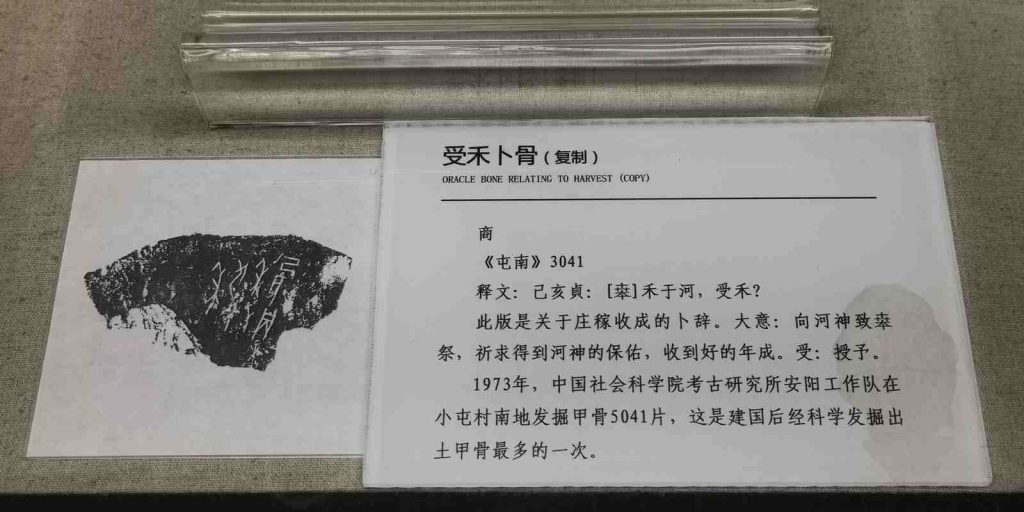 受禾卜骨（复制）
ORACLE BONE RELATING TO HARVEST (COPY)
商
《屯南》3041
释文：己亥贞：[𠦪]禾于河，受禾？
此版是关于庄稼收成的卜辞。大意：向河神致𠦪
祭，祈求得到河神的保佑，收到好的年成。受：授予。
1973年，中国社会科学院考古研究所安阳工作队在
小屯村南地发掘甲骨5041片，这是建国后经科学发掘出
土甲骨最多的一次。